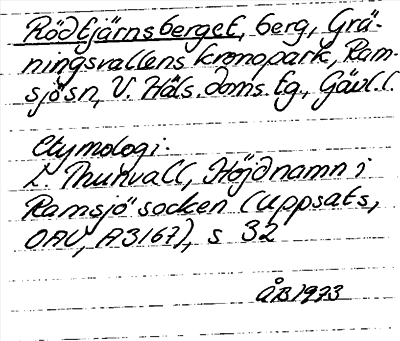 Rödtjärnsberget, berg, Grä-
ningsvallens kronopark, Ram-
sjösn, V. Häls. doms. tg., Gävl. l.
Etymologi:
L. Thunvall, Höjdnamn i
Ramsjö socken (uppsats,
OAU, A3167), s 32
ÅB 1973